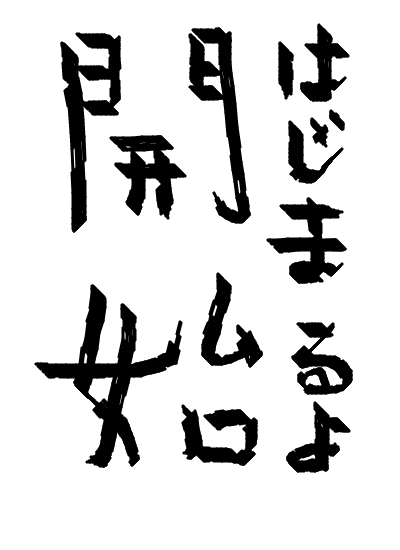 はじまるよ
開始